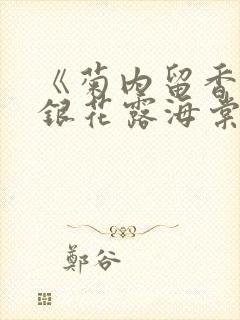 《菊内留香
銀花露海棠
鄭谷